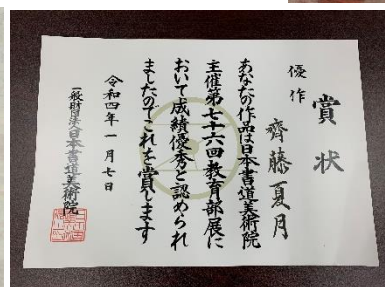 賞状
優作
齊藤夏月
あなたの作品は日本書道美術院
主催第七十六回教育部展に
おいて成績優秀と認められ
ましたのでこれを賞します
令和四年一月七日
一般財団法人日本書道美術院